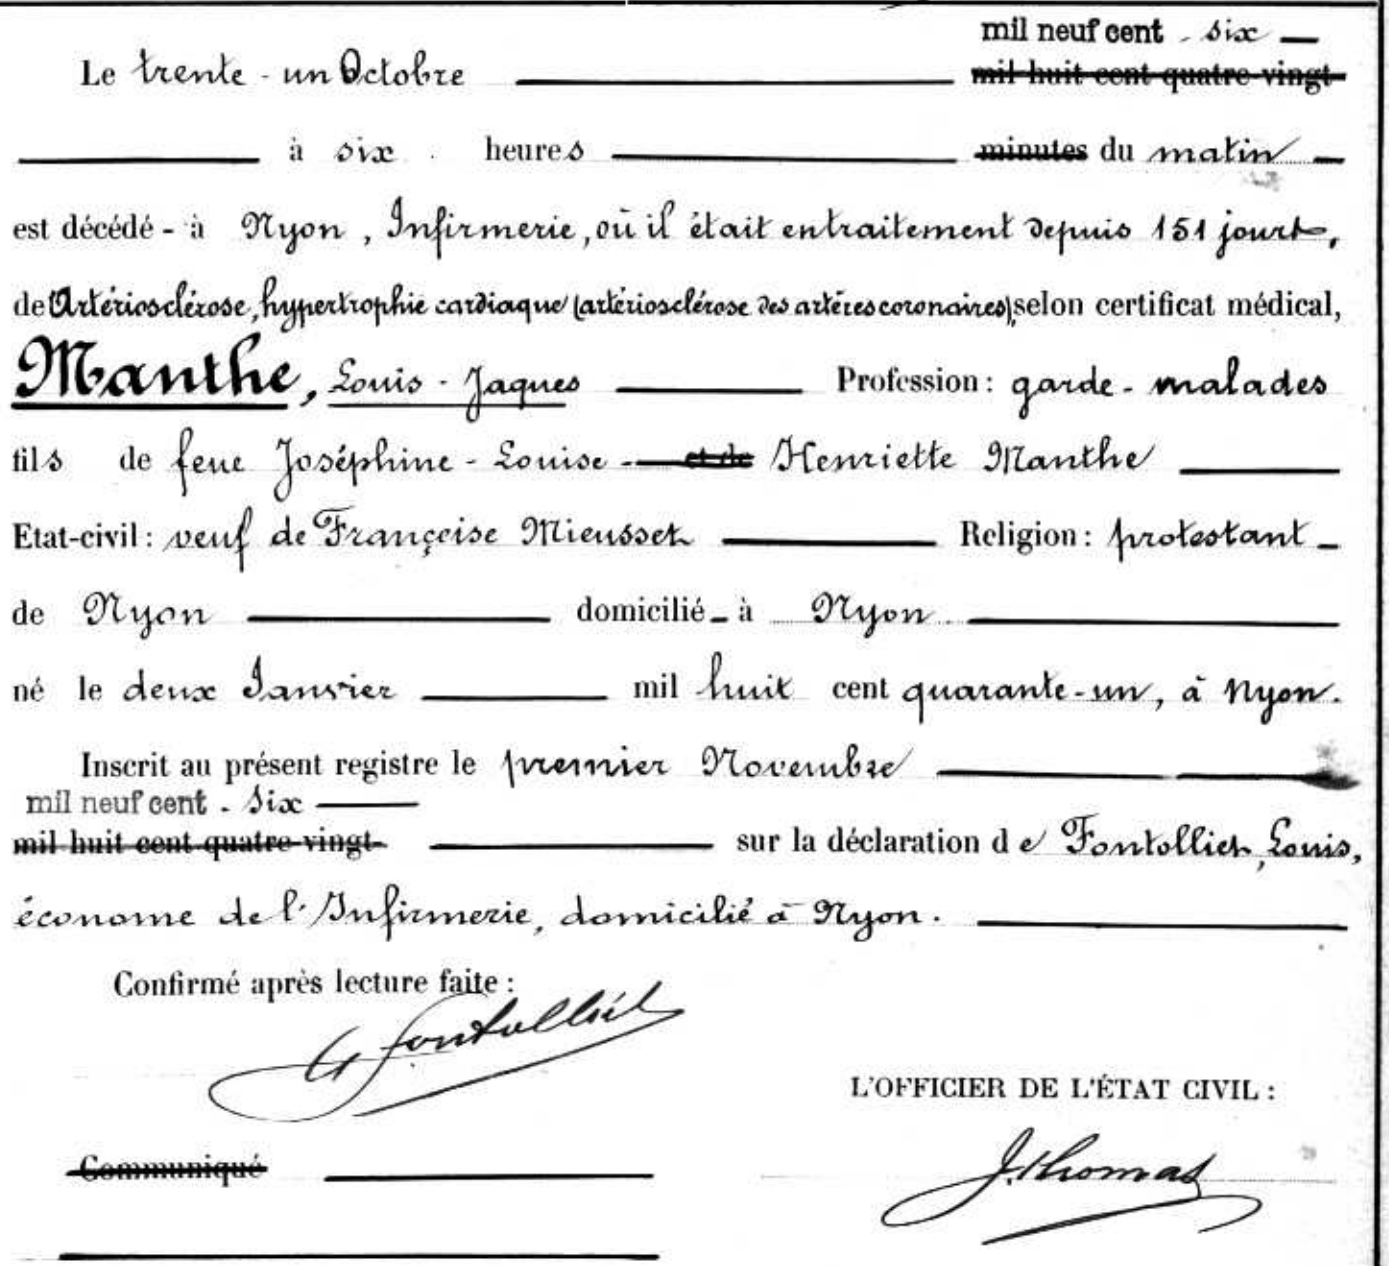 mil neuf cent - six
Le trente-un Octobre mil huit cent quatre-vingt-
à six heures minutes du matin
est décédé - à Nyon, Infirmerie, où il était en traitement depuis 151 jours,
de Artériosclérose, hypertrophie cardiaque (artériosclérose des artères coronaires), selon certificat médical,
Manthe, Louis-Jaques Profession : garde-malades
fils de feue Joséphine-Louise- et de Henriette Manthe
Etat-civil : veuf de Françoise Mieusset Religion : protestant
de Nyon domicilié à Nyon
né le deux Janvier mil huit cent quarante-un, à Nyon.
Inscrit au présent registre le premier Novembre
mil neuf cent - six
mil huit cent quatre-vingt- sur la déclaration de Fontolliet, Louis,
économe de l'Infirmerie, domicilié à Nyon.
Confirmé après lecture faite :
Fontolliet
L'OFFICIER DE L'ÉTAT CIVIL :
Communiqué
J. Thomas